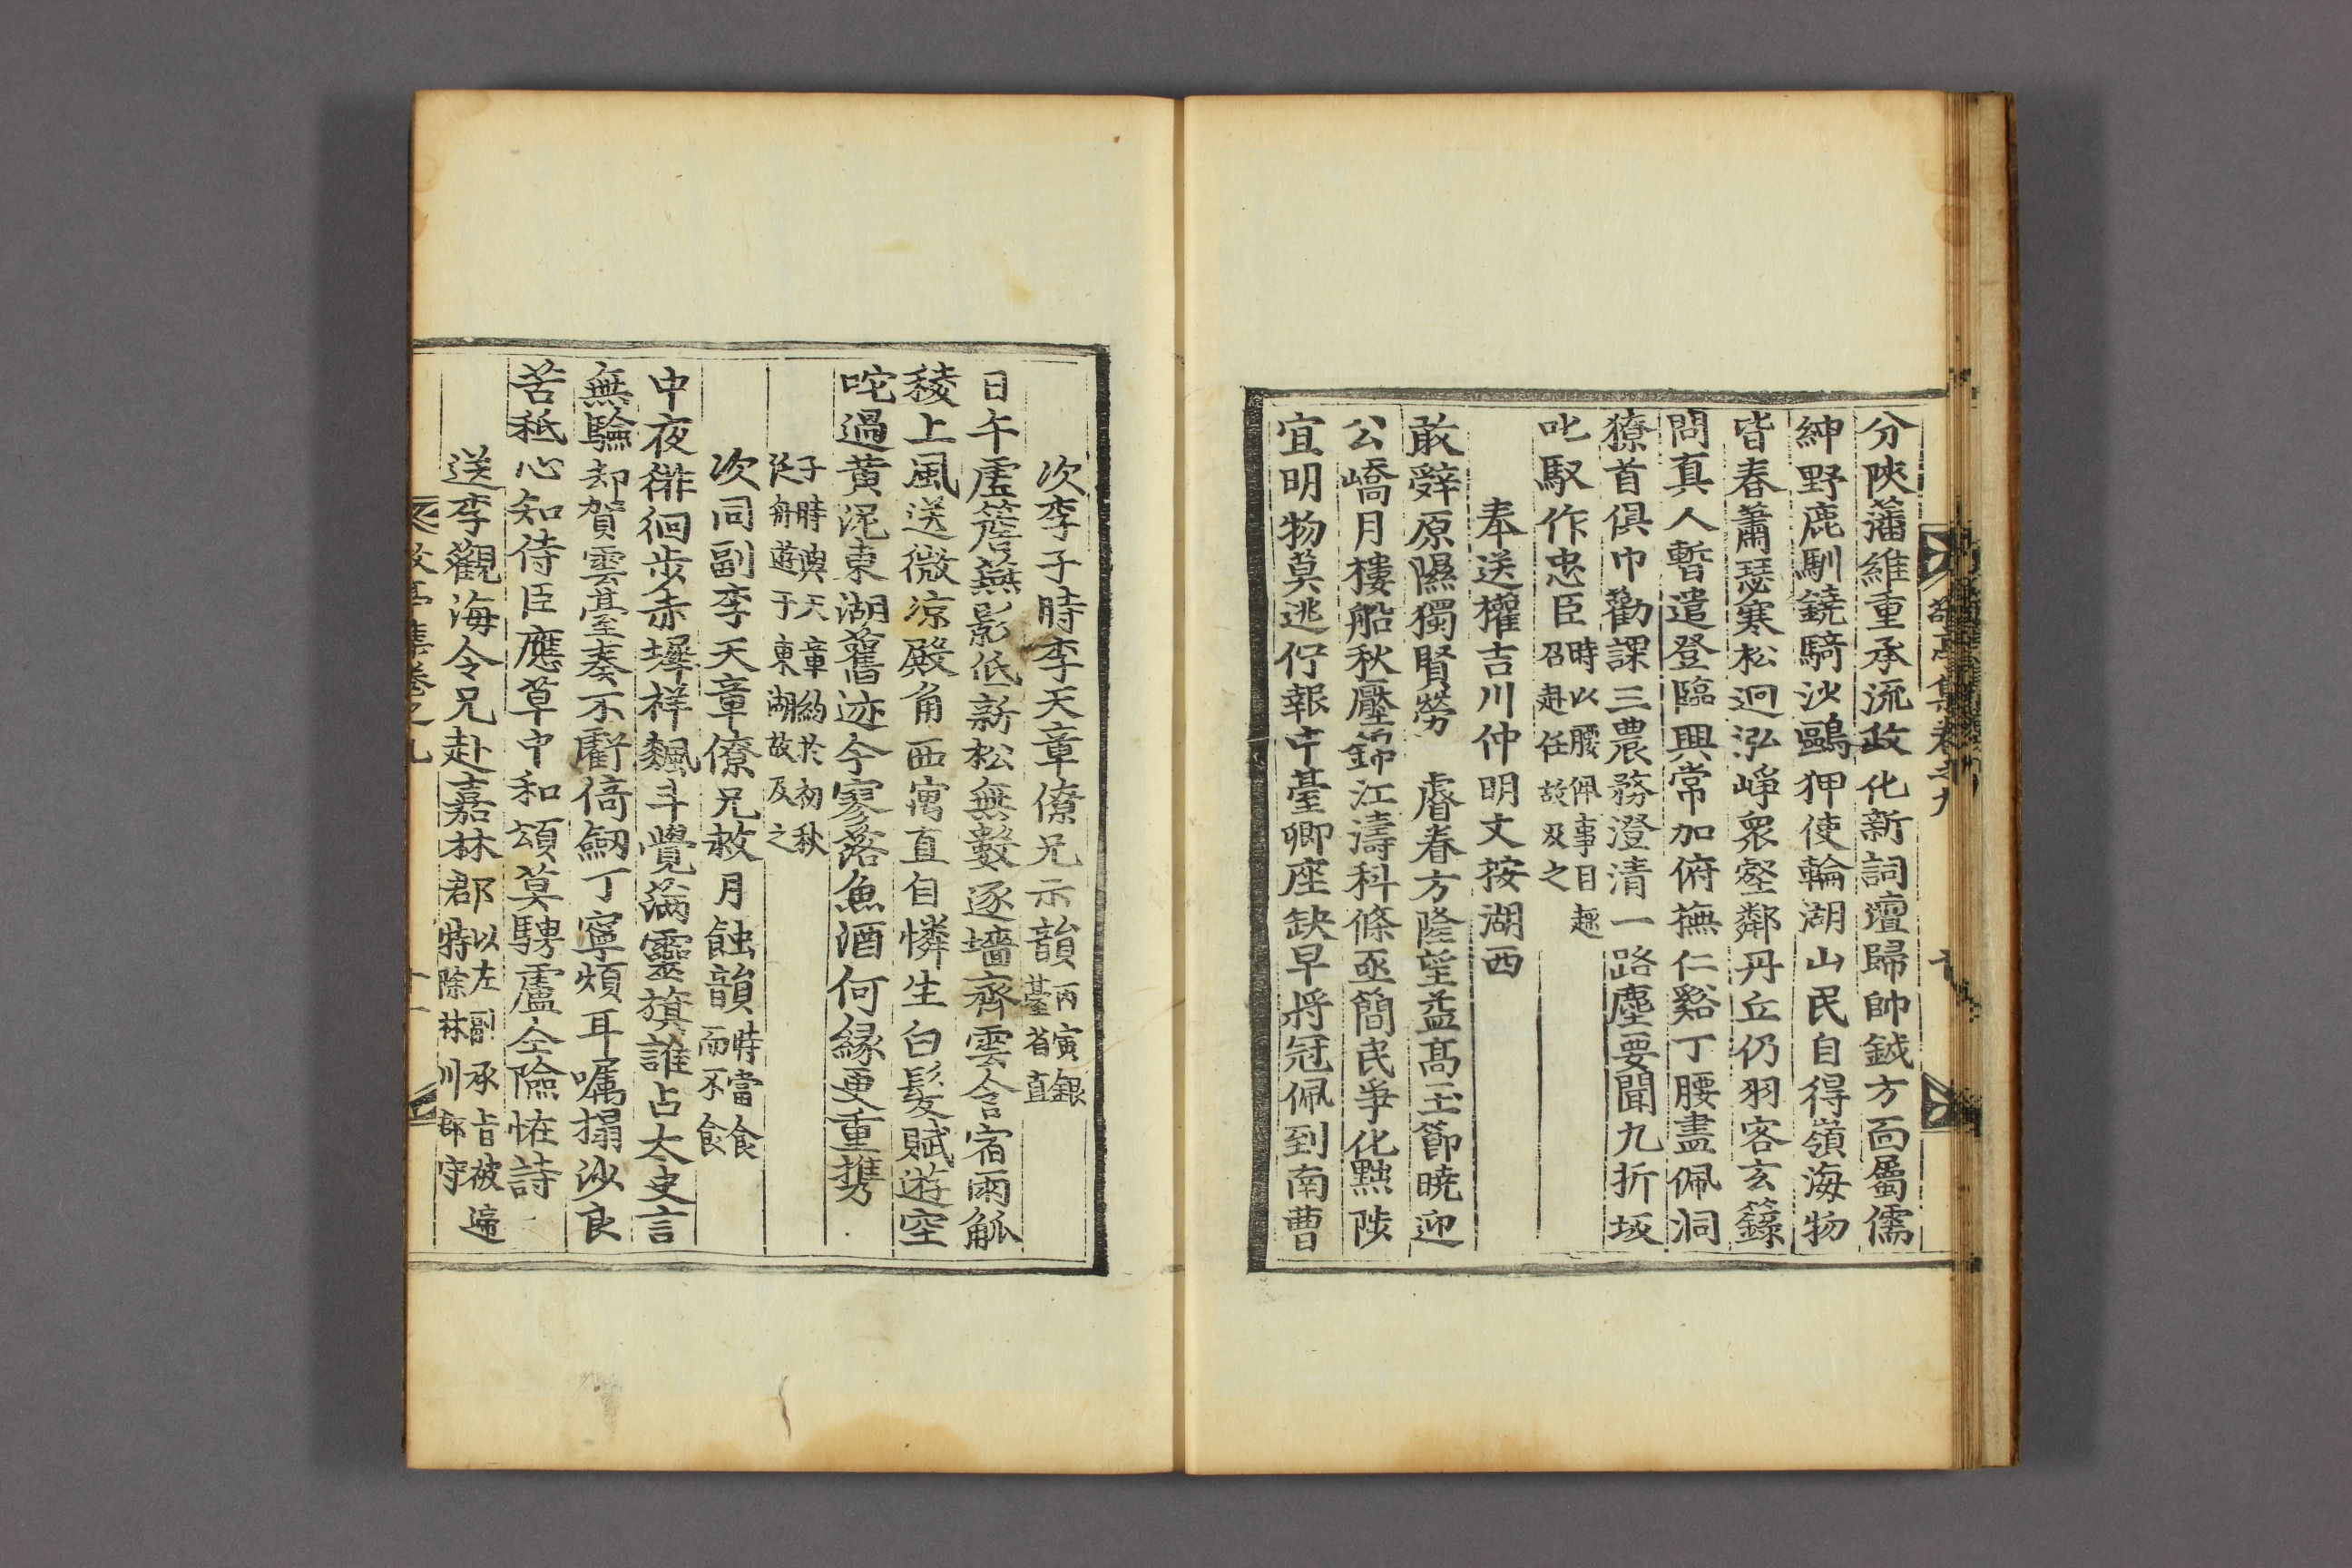 分陝藩維重承流政化新詞壇歸帥鉞方面屬儒
紳野鹿馴鐃騎沙鷗狎使輪湖山民自得嶺海物
皆春蕭瑟寒松逈泓崢衆壑鄰丹丘仍羽客玄籙
問真人暫遣登臨興常加俯撫仁谿丁腰盡佩洞
獠首俱巾勸課三農務澄清一路塵要聞九折坂
叱馭作忠臣時以腰佩事目趣
召赴任故及之
奉送權吉川仲明丈按湖西
敢辭原隰獨賢勞 睿眷方隆望益髙玉節曉迎
公嶠月樓船秋壓錦江濤科條亟簡民爭化黜陟
宜明物莫逃佇報中臺卿座缺早將冠佩到南曹
敬亭集卷之九 十
次李子時李天章僚兄示韻丙寅銀
臺省直
日午虛簷蕪影低新松無數逐墻齊雲含宿雨觚
稜上風送微凉殿角西寓直自憐生白髮賦遊空
咤過黄泥東湖舊迹今寥落魚酒何縁更重携
子時與天章約於初秋
泛舟遊于東湖故及之
次同副李天章僚兄赦月蝕韻時當食
而不食
中夜徘徊步赤墀祥飆斗覺滿靈旗誰占太史言
無驗却賀雲臺奏不虧倚劒丁寧煩耳囑搨沙良
苦秪心知侍臣應草中和頌莫騁盧仝險恠詩
送李觀海令兄赴嘉林郡以左副承旨被遞
特除林川郡守
敬亭集卷之九 十一